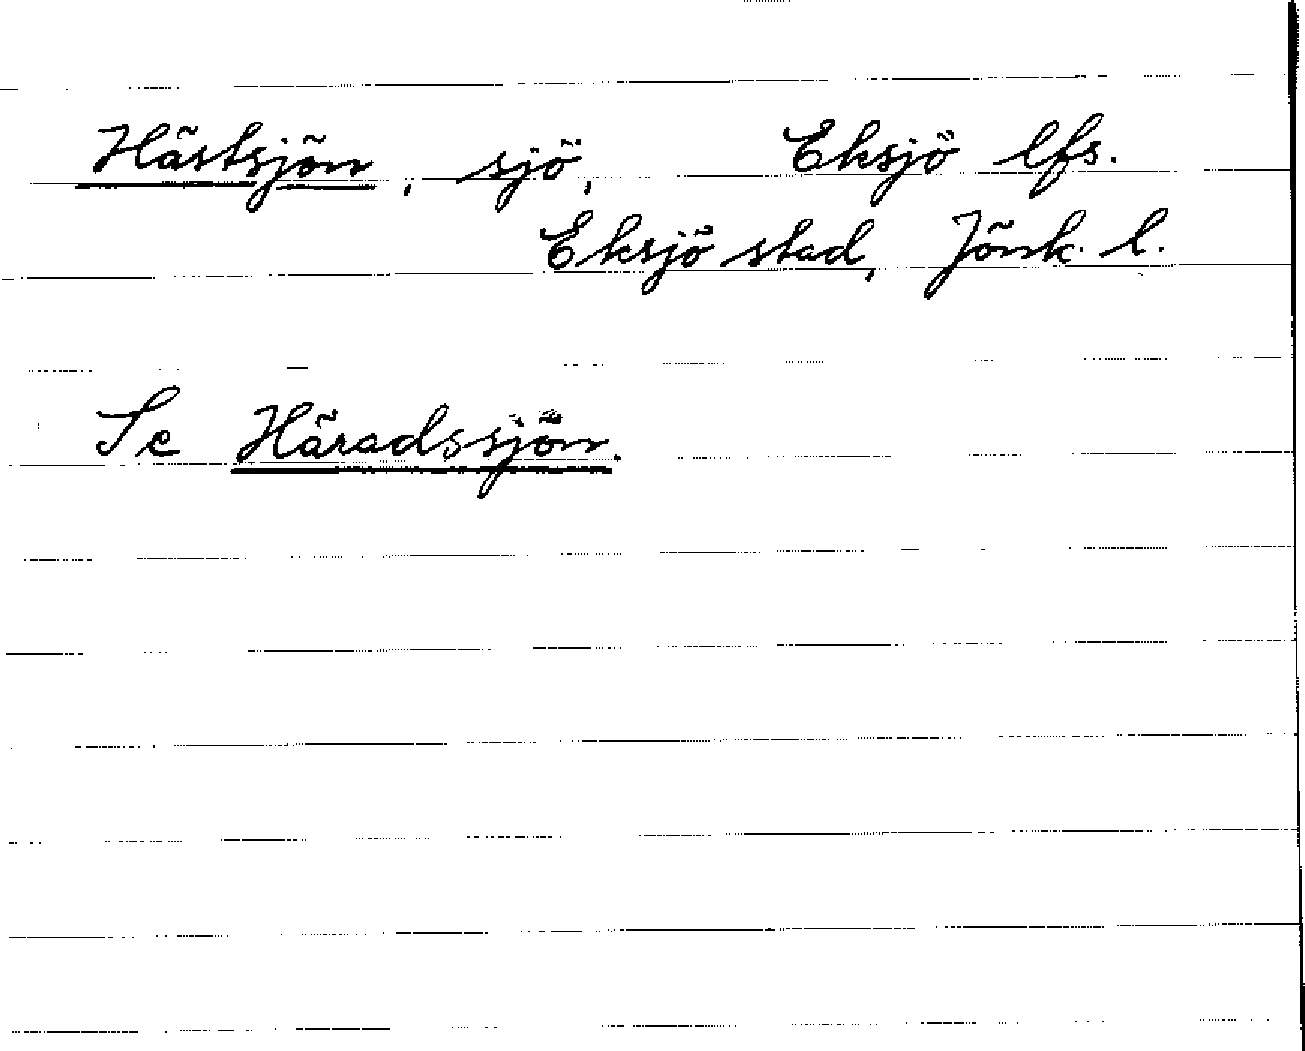 Hästsjön, sjö, Eksjö lfs.
Eksjö stad, Jönk. l.
Se Häradssjön.